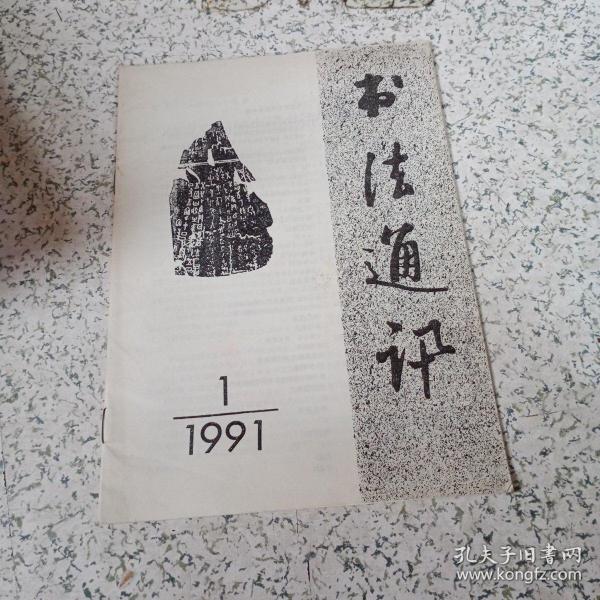 书法通讯
1
1991
孔夫子旧书网
www.kongfz.com